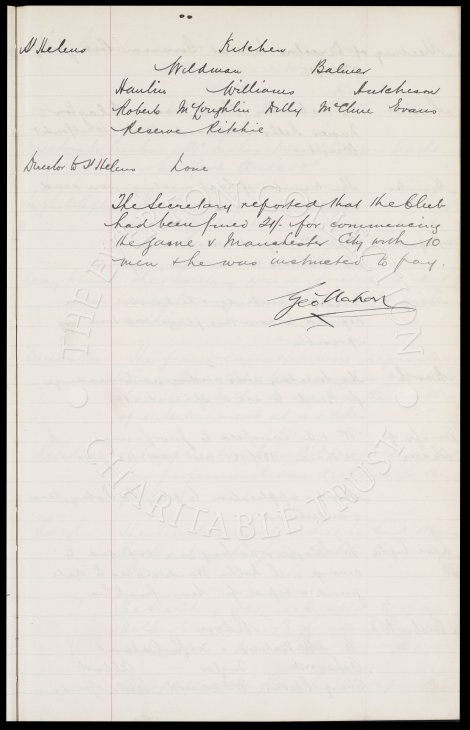 St Helens Kitchen
Wildman Balmer
Hamlin Williams Hutcheson
Roberts McLoughlin Dilly McClure Evans
Reserve Ritchie
Director to St Helens Lowe
The Secretary reported that the Club
had been fined 21/- for commencing
the game v Manchester City with 10
men & he was instructed to pay.
Geo Mahon
THE EVERTON COLLECTION
CHARITABLE TRUST